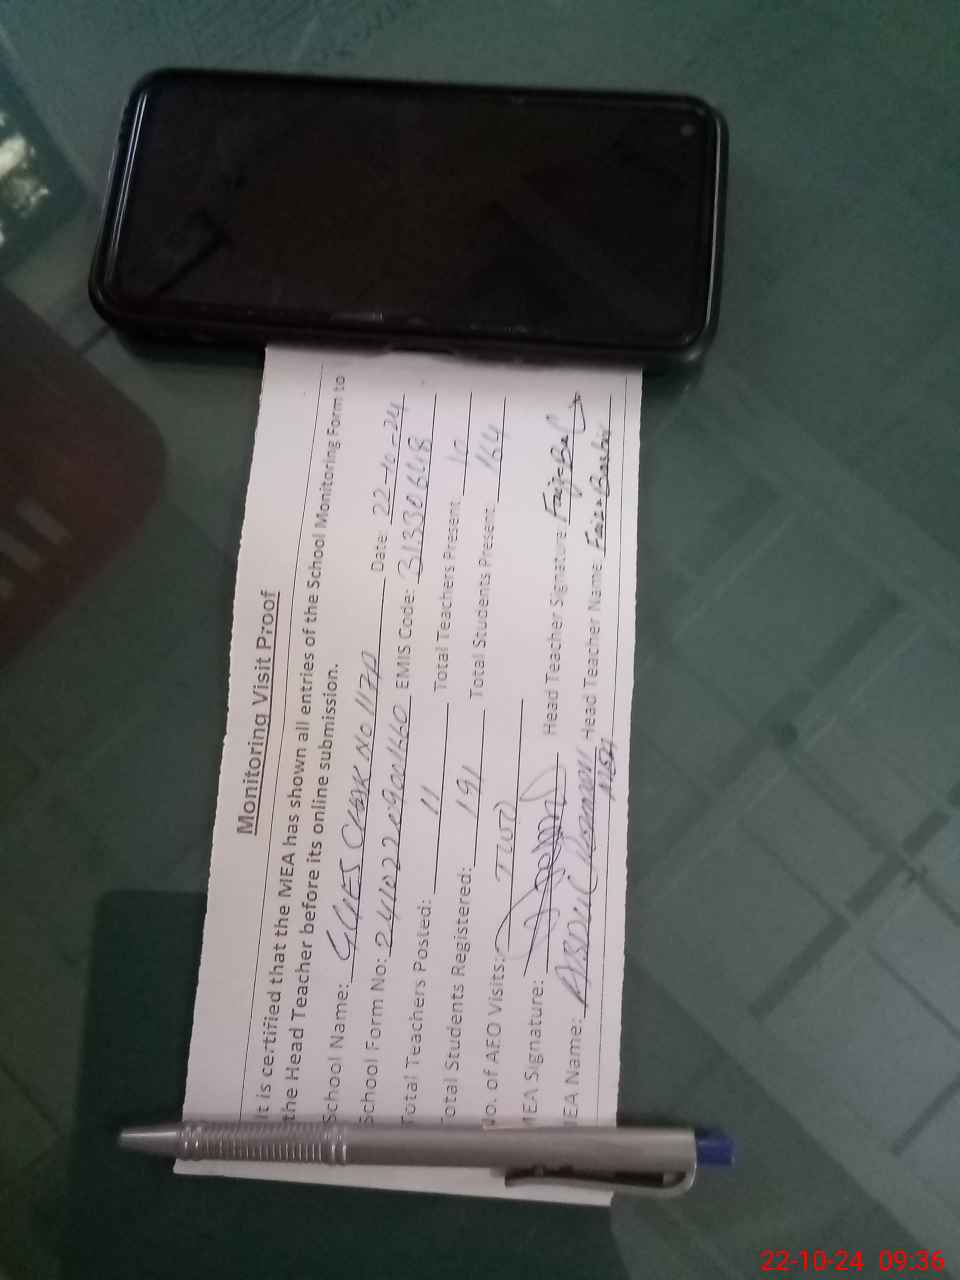 Monitoring Visit Proof
It is certified that the MEA has shown all entries of the School Monitoring Form to
the Head Teacher before its online submission.
School Name: GGES CHAK NO 117P Date: 22-10-24
School Form No: EMIS Code: 31330648
Total Teachers Posted: 11 Total Teachers Present 10
Total Students Registered: 191 Total Students Present 164
No. of AEO Visits: TWO
MEA Signature: Head Teacher Signature:
MEA Name: ABDUL Head Teacher Name: Faiza Bashir
MEA
22-10-24 09:36